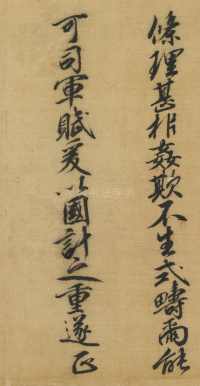 條理甚析姦欺不生式疇爾能
可司軍賦爰以國計之重遂正